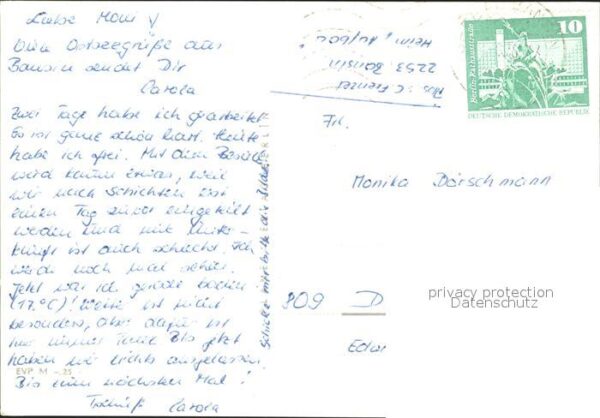 Liebe Moni!
Liebe Ostseegrüße aus
Bansin sendet Dir
Carola
Zwei Tage habe ich gearbeitet.
Es ist ganz schön hart. Heute
habe ich frei. Mit dem Besuch
wird kaum etwas, weil
wir nach Schichten erst
einen Tag zuvor eingeteilt
werden und mit Unter-
kunft ist auch schlecht. Ich
werde noch mal sehen.
Jetzt war ich gerade baden
(17°C)! Wetter ist nicht
besonders, aber dafür ist
hier immer Tanz. Bis jetzt
haben wir nichts ausgelassen.
Bis zum nächsten Mal!
Carola
EVP M -,25
Schicke mir bitte die Bilder
Abs.: C. Frenzel
2253 Bansin
Heim „Aufbau"
10
Berlin-Rathausstraße
DEUTSCHE DEMOKRATISCHE REPUBLIK
Frl.
Monika Dörschmann
809 D
privacy protection
Datenschutz